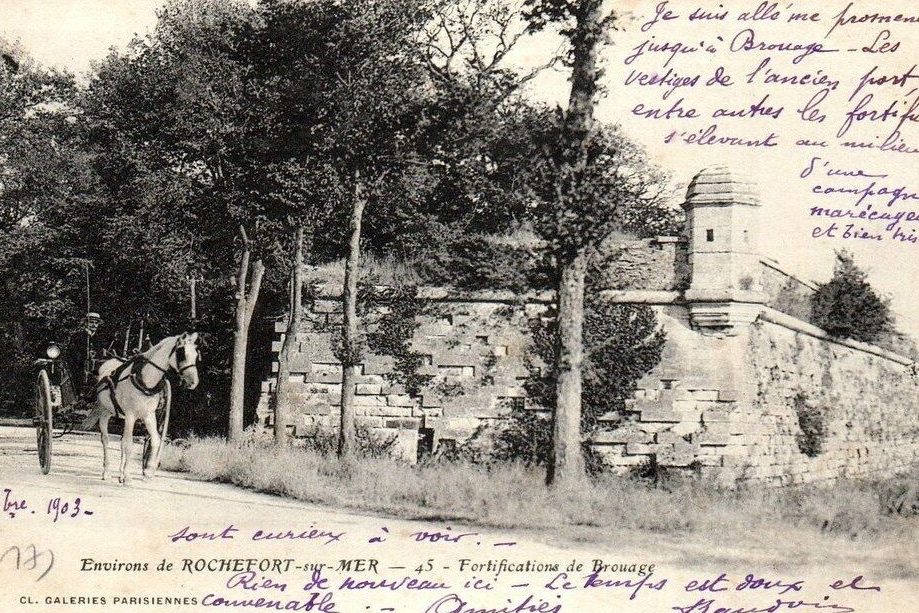 Je suis allé me promene
jusqu'à Brouage - Les
vestiges de l'ancien port
entre autres les fortifi
s'élevant au milieu
d'une
campagn
marécageu
et bien tris
bre. 1903-
sont curieux à voir. -
17)
Environs de ROCHEFORT-sur-MER — 45 - Fortifications de Brouage
Rien de nouveau ici - Le temps est doux et
CL. GALERIES PARISIENNES convenable. - Amitiés